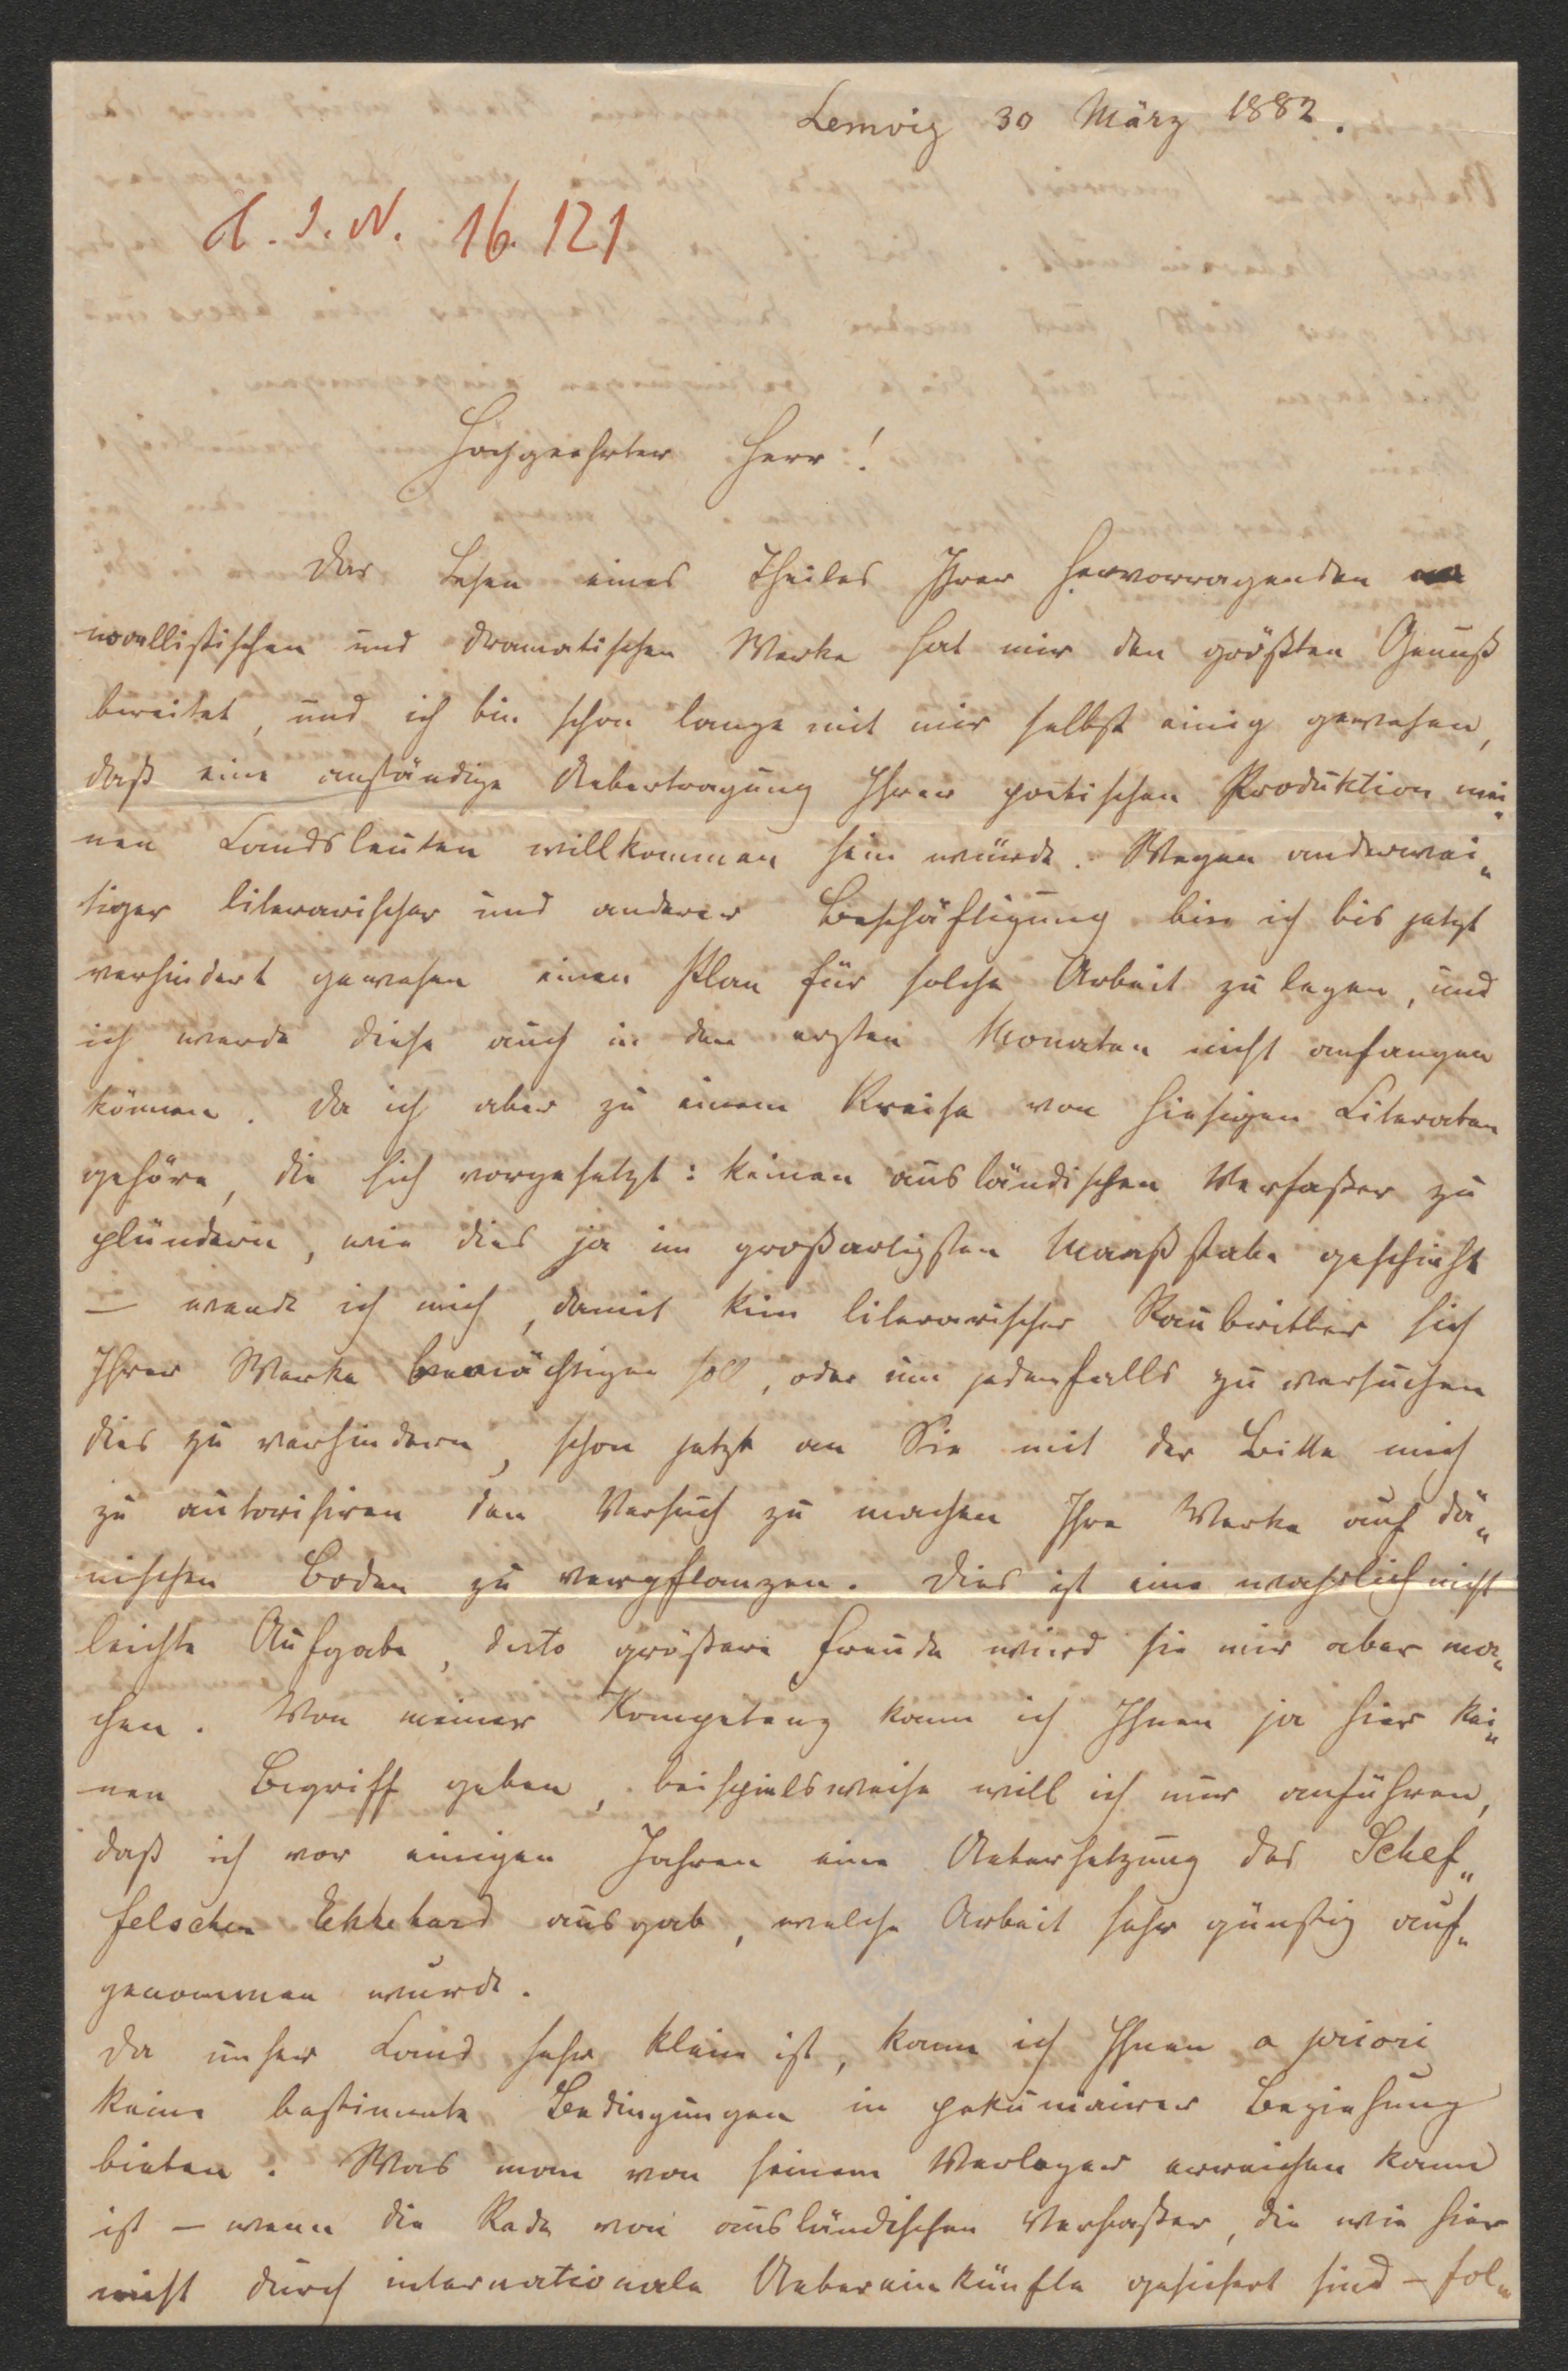 Lemvig 30 März 1882.
A. I. N. 16. 121
Hochgeehrter Herr!
Das Lesen eines Theiles Ihrer hervorragenden
novellistischen und dramatischen Werke hat mir den größten Genuß
bereitet, und ich bin schon lange mit mir selbst einig gewesen,
daß eine anständige Uebertragung Ihrer poetischen Produktion mei„
nen Landsleuten willkommen sein würde. Wegen anderwei„
tiger literarischer und anderer Beschäftigung bin ich bis jetzt
verhindert gewesen einen Plan für solche Arbeit zu legen, und
ich werde diese auch in den ersten Monaten nicht anfangen
können. Da ich aber zu einem Kreise von hiesigen Literaten
gehöre, die sich vorgesetzt: keinen ausländischen Verfaßer zu
plündern, wie dies ja im großartigsten Maaßstabe geschieht
– wende ich mich, damit kein literarischer Raubritter sich
Ihrer Werke bemächtigen soll, oder um jedenfalls zu versuchen
dies zu verhindern, schon jetzt an Sie mit der Bitte mich
zu autorisiren den Versuch zu machen Ihre Werke auf dä„
nischen Boden zu verpflanzen. Dies ist eine wahrlich nicht
leichte Aufgabe, desto größere Freude wird sie mir aber ma„
chen. Von meiner Kompetenz kann ich Ihnen ja hier kei„
nen Begriff geben, beispielsweise will ich nur anführen,
daß ich vor einigen Jahren eine Uebersetzung des Schef„
felschen Ekkehard ausgab, welche Arbeit sehr günstig auf„
genommen wurde.
Da unser Land sehr klein ist, kann ich Ihnen a priori
keine bestimmte Bedingungen in pekuniairer Beziehung
bieten. Was man von seinem Verleger erreichen kann
ist – wenn die Rede von ausländischen Verfaßer, die wie hier
nicht durch internationale Uebereinkünfte gesichert sind – fol„